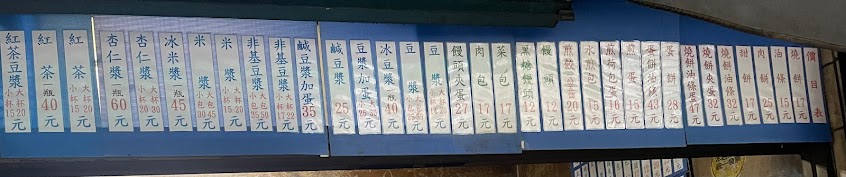 價目表
燒餅17元
油條15元
肉餅25元
甜餅17元
燒餅油條32元
燒餅夾蛋32元
燒餅油條蛋47元
蛋餅28元
蛋餅油條43元
煎蛋15元
煎荷包蛋16元
水煎包15元
煎餃20元
饅頭12元
黑糖饅頭12元
菜包17元
肉包17元
饅頭夾蛋27元
豆漿大杯小杯元
豆漿元
冰豆漿瓶40元
豆漿加蛋元
鹹豆漿25元
鹹豆漿加蛋35元
非基豆漿大杯小杯1722元
非基豆漿大包小包3550元
米漿大杯小杯1520元
米漿大包小包3045元
冰米漿瓶45元
杏仁漿大杯小杯2030元
杏仁漿瓶60元
紅茶大杯小杯1520元
紅茶瓶40元
紅茶豆漿大杯小杯1520元